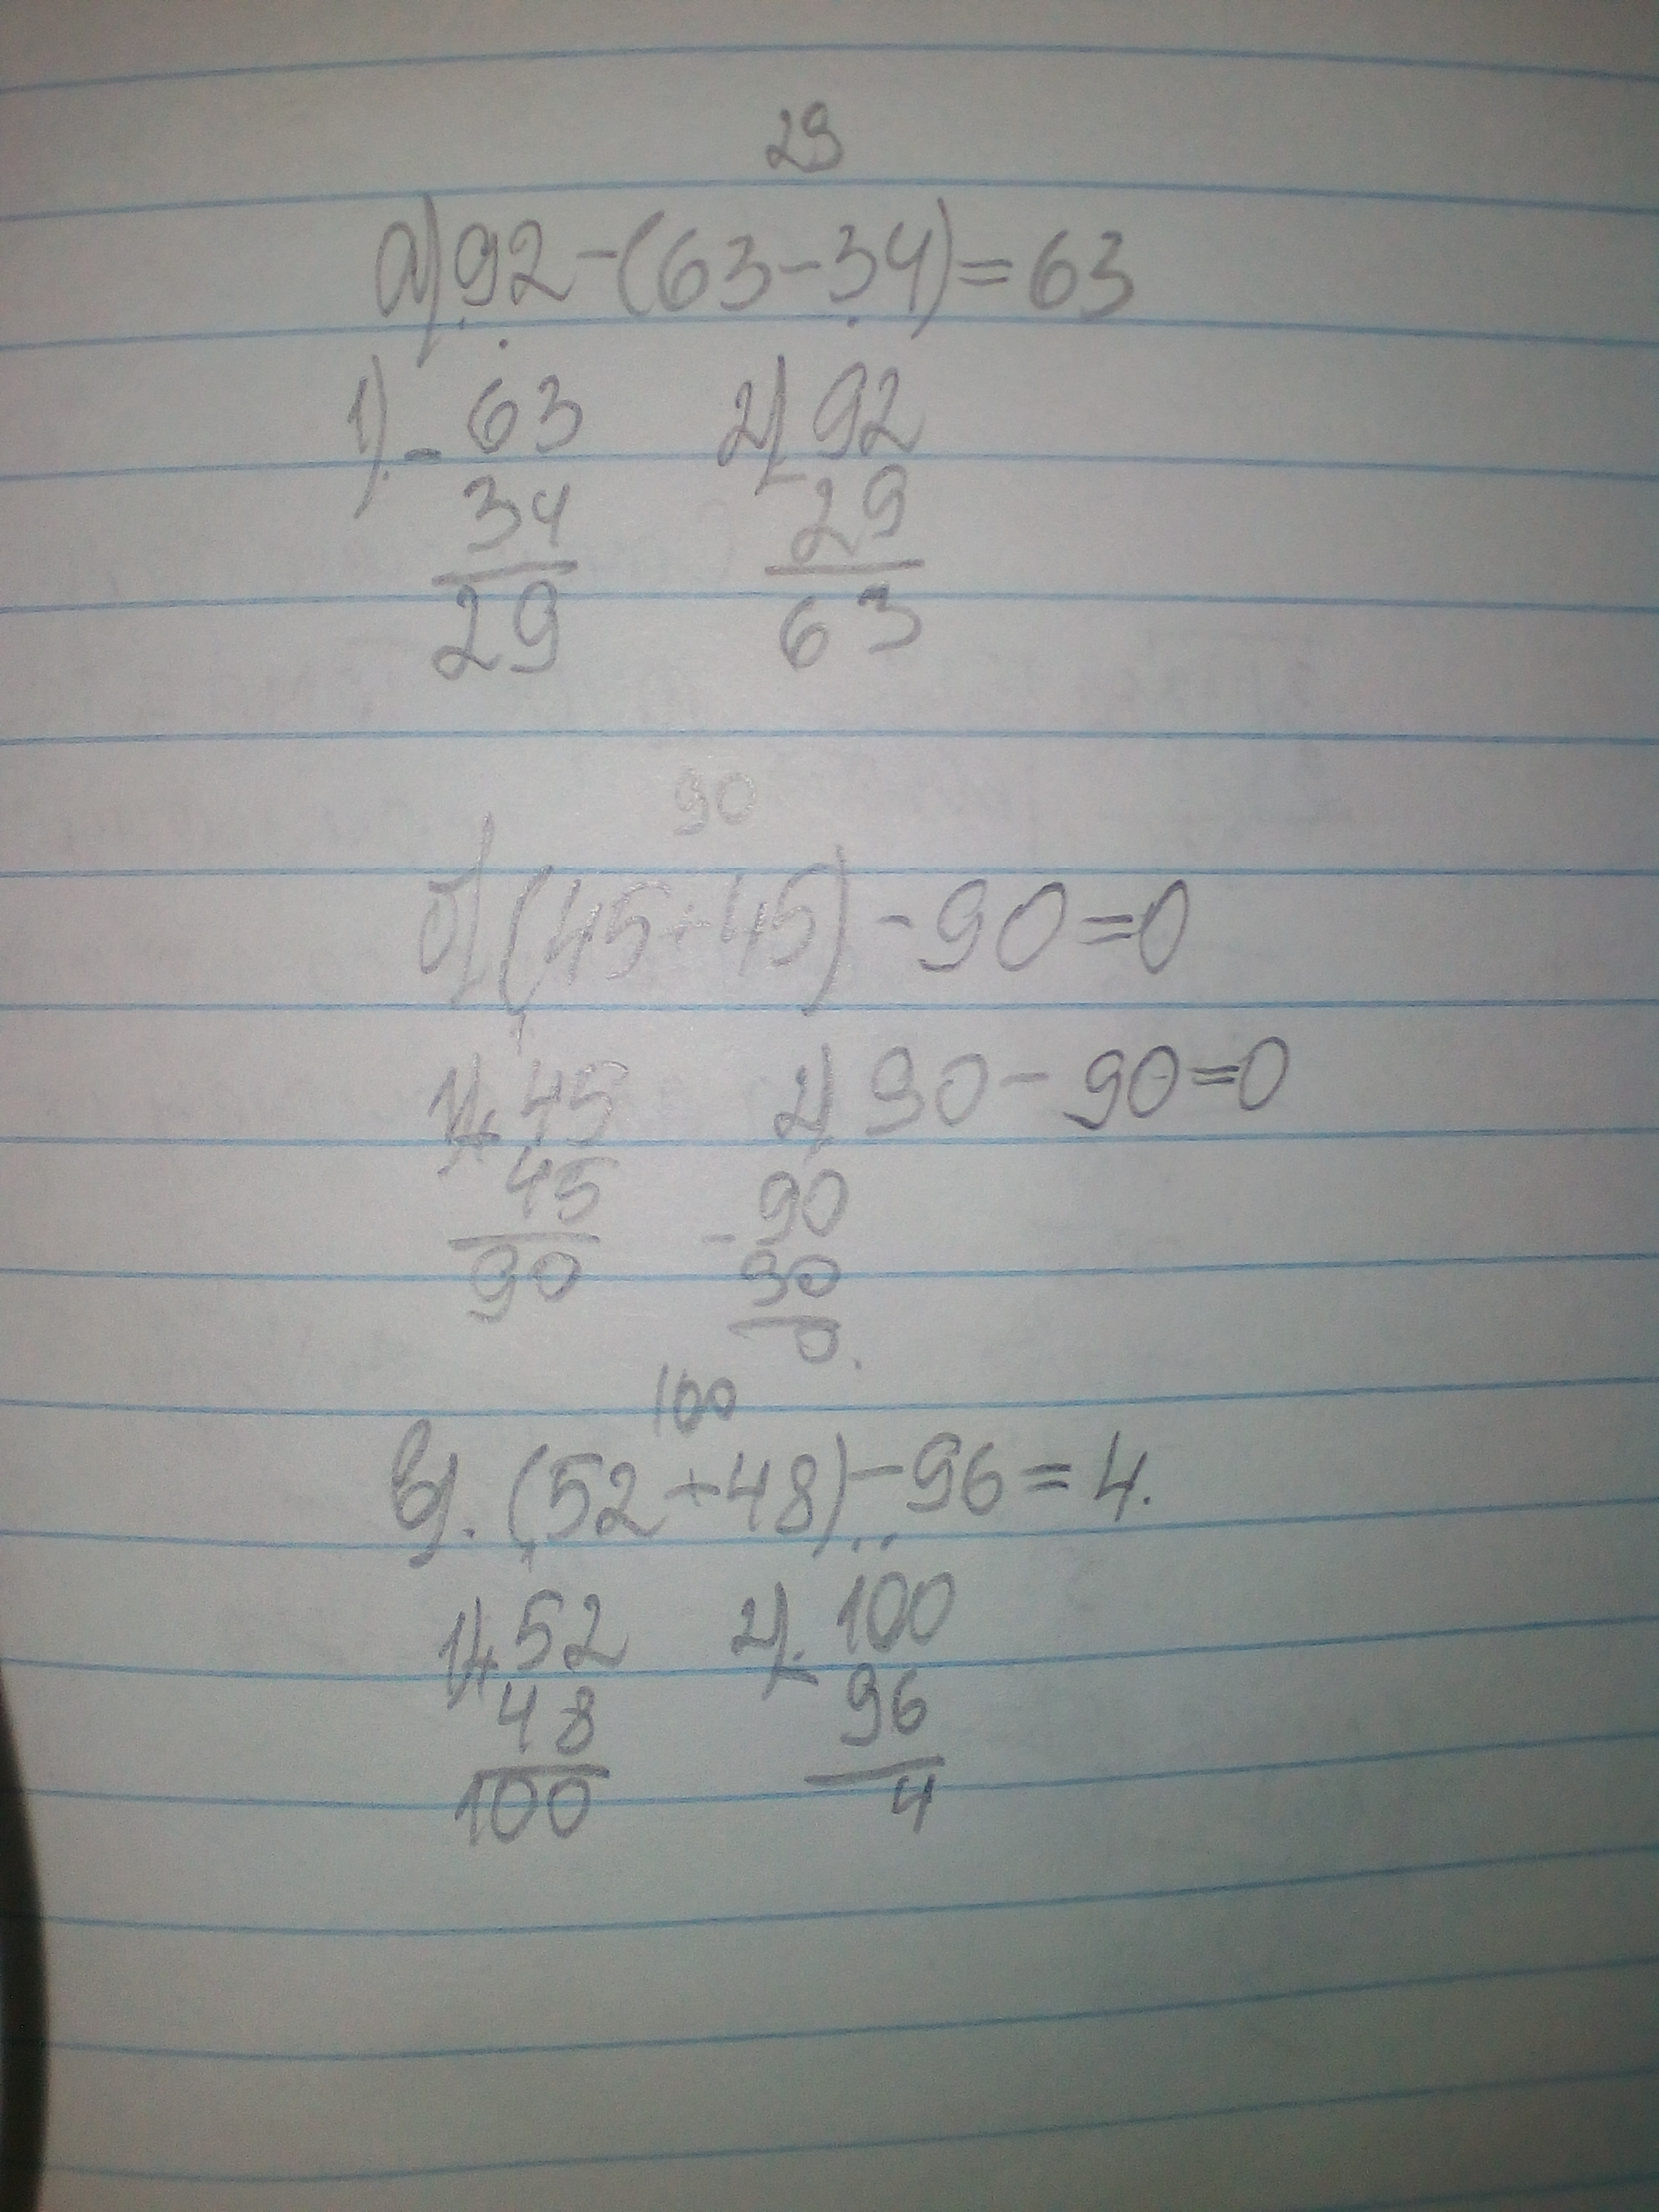 29
а) 92-(63-34)=63
1). - 63 2) - 92
34 29
29 63
90
б) (45+45)-90=0
1) + 45 2) 90-90=0
45 - 90
90 90
0.
100
в). (52+48)-96=4.
1) + 52 2). - 100
48 96
100 4